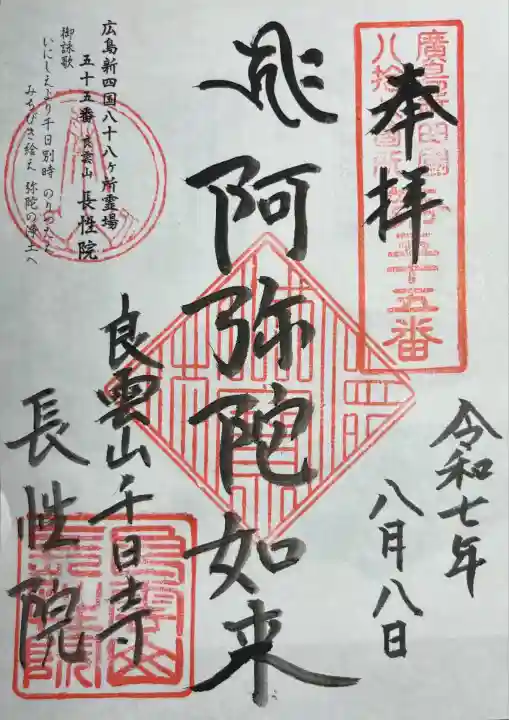 奉拝
第五十五番
令和七年
八月八日
阿弥陀如来
良雲山千日寺
長性院
広島新四国八十八ヶ所霊場
五十五番 良雲山 長性院
御詠歌
いにしえより千日別時
みちびき絵え 弥陀の浄土へ